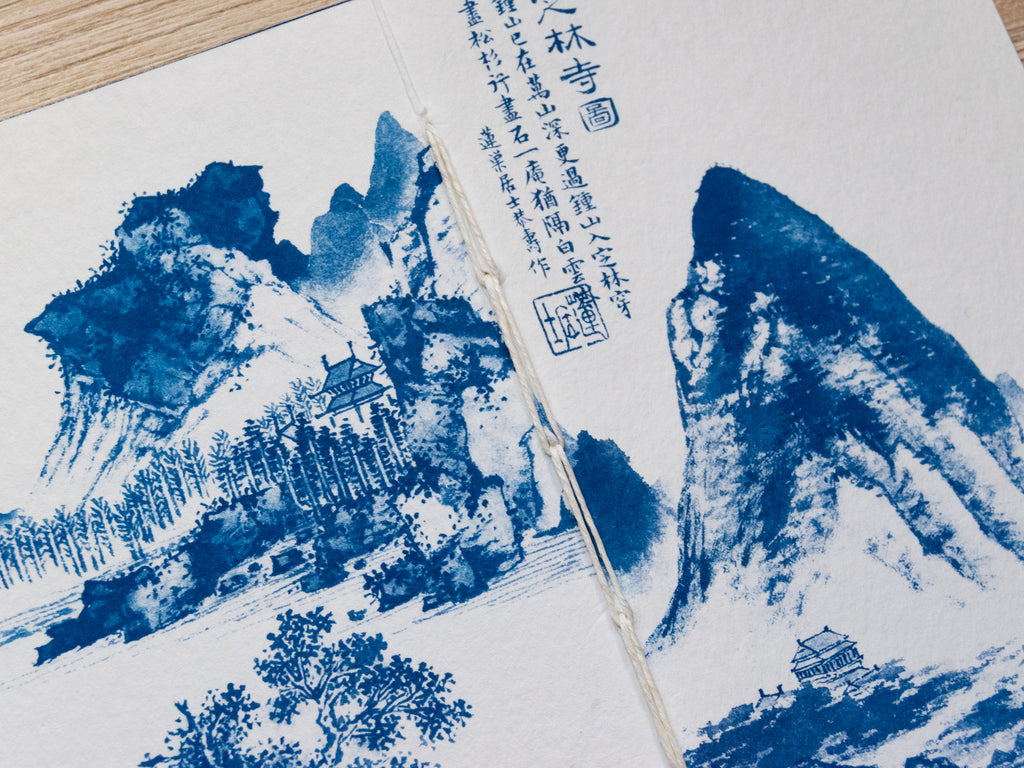 林寺圖
鍾山已在萬山深更過鍾山入定林穿
盡松杉行盡石一庵猶隔白雲
蓮巢居士恭壽作